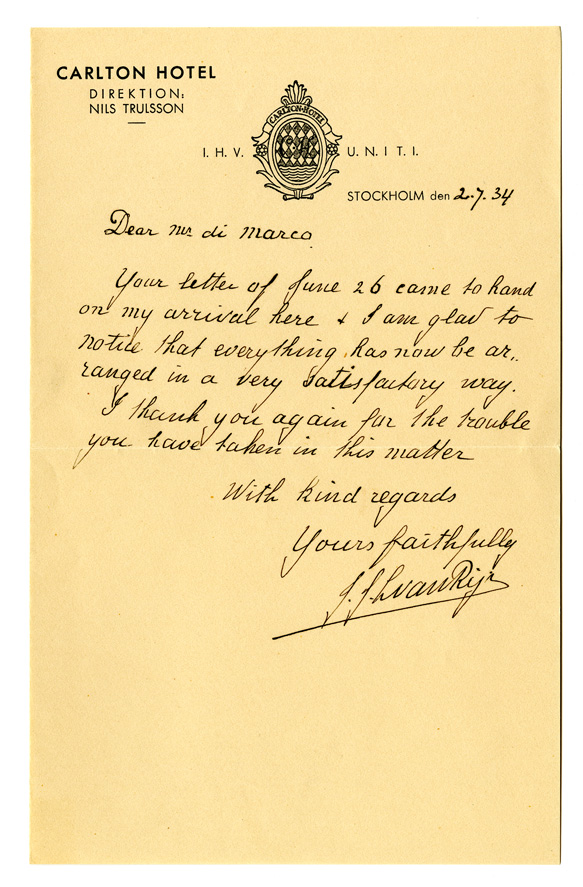 CARLTON HOTEL
DIREKTION:
NILS TRULSSON
CARLTON-HOTEL
CH
I. H. V. U. N. I T. I.
STOCKHOLM den 2.7.34
Dear Mr di Marco
Your letter of June 26 came to hand
on my arrival here & I am glad to
notice that everything has now be ar,,
ranged in a very satisfactory way.
I thank you again for the trouble
you have taken in this matter
With kind regards
Yours faithfully
van Rijn